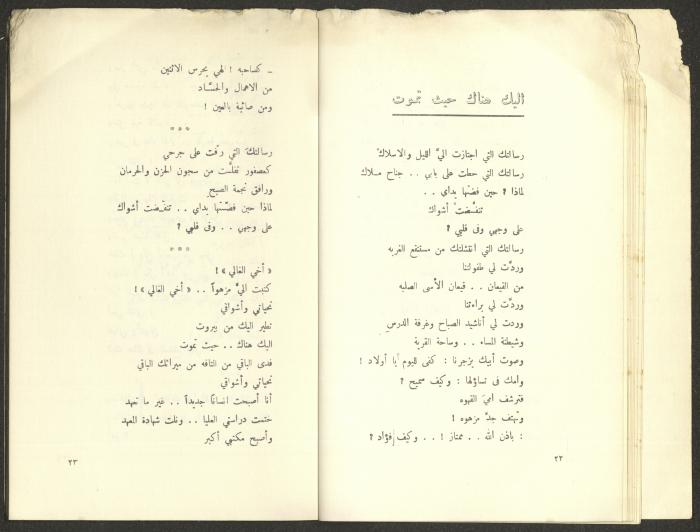 اليك هناك حيث تموت
رسالتك التي اجتازت اليَّ الليل والاسلاك
رسالتك التي حطت على بابي . . جناح ملاك
لماذا ؟ حين فضّتها يداي . .
تنفَّضتْ أشواك
على وجهي وفى قلبي ؟
رسالتك التي انتشلتك من مستنقع الغربه
وردَّت لي طفولتنا
من القيعان . . قيعان الأسى الصلبه
وردَّت لي براءتنا
وردت لي أناشيد الصباح وغرفة الدرسِ
وشيطنة المساء . . وساحة القرية
وصوت أبيك يزجرنا : كفى لليوم يا أولاد !
وأمك فى تساؤلها : وكيف صحيح ؟
فترشف أميَ القهوه
وتهتف جدَّ مزهوه !
: باذن الله . . ممتاز ! . . وكيف فؤاد ؟
٢٢
ـ كصاحبه ! الهي يحرس الاثنين
من الاهمال والحسَّاد
ومن صائبة بالعين !
***
رسالتك التي رفّت على جرحي
كعصفور تفلَّت من سجون الحزن والحرمان
ورافق نجمة الصبحِ
لماذا حين فضّتها يداي . . تنفّضت أشواك
على وجهي . . وفى قلبي ؟
***
« أخي الغالي » !
كتبت اليَّ مزهواً . . « أخي الغالي » !
تحياتي وأشواقي
تطير اليك من بيروت
اليك هناك . . حيث تموت
فدى الباقي من التافه من ميراثك الباقي
تحياتي وأشواقي
أنا أصبحت انسانا جديداً . . غير ما تعهد
ختمت دراستي العليا . . ونلت شهادة المعهد
وأصبح مكتبي أكبر
٢٣